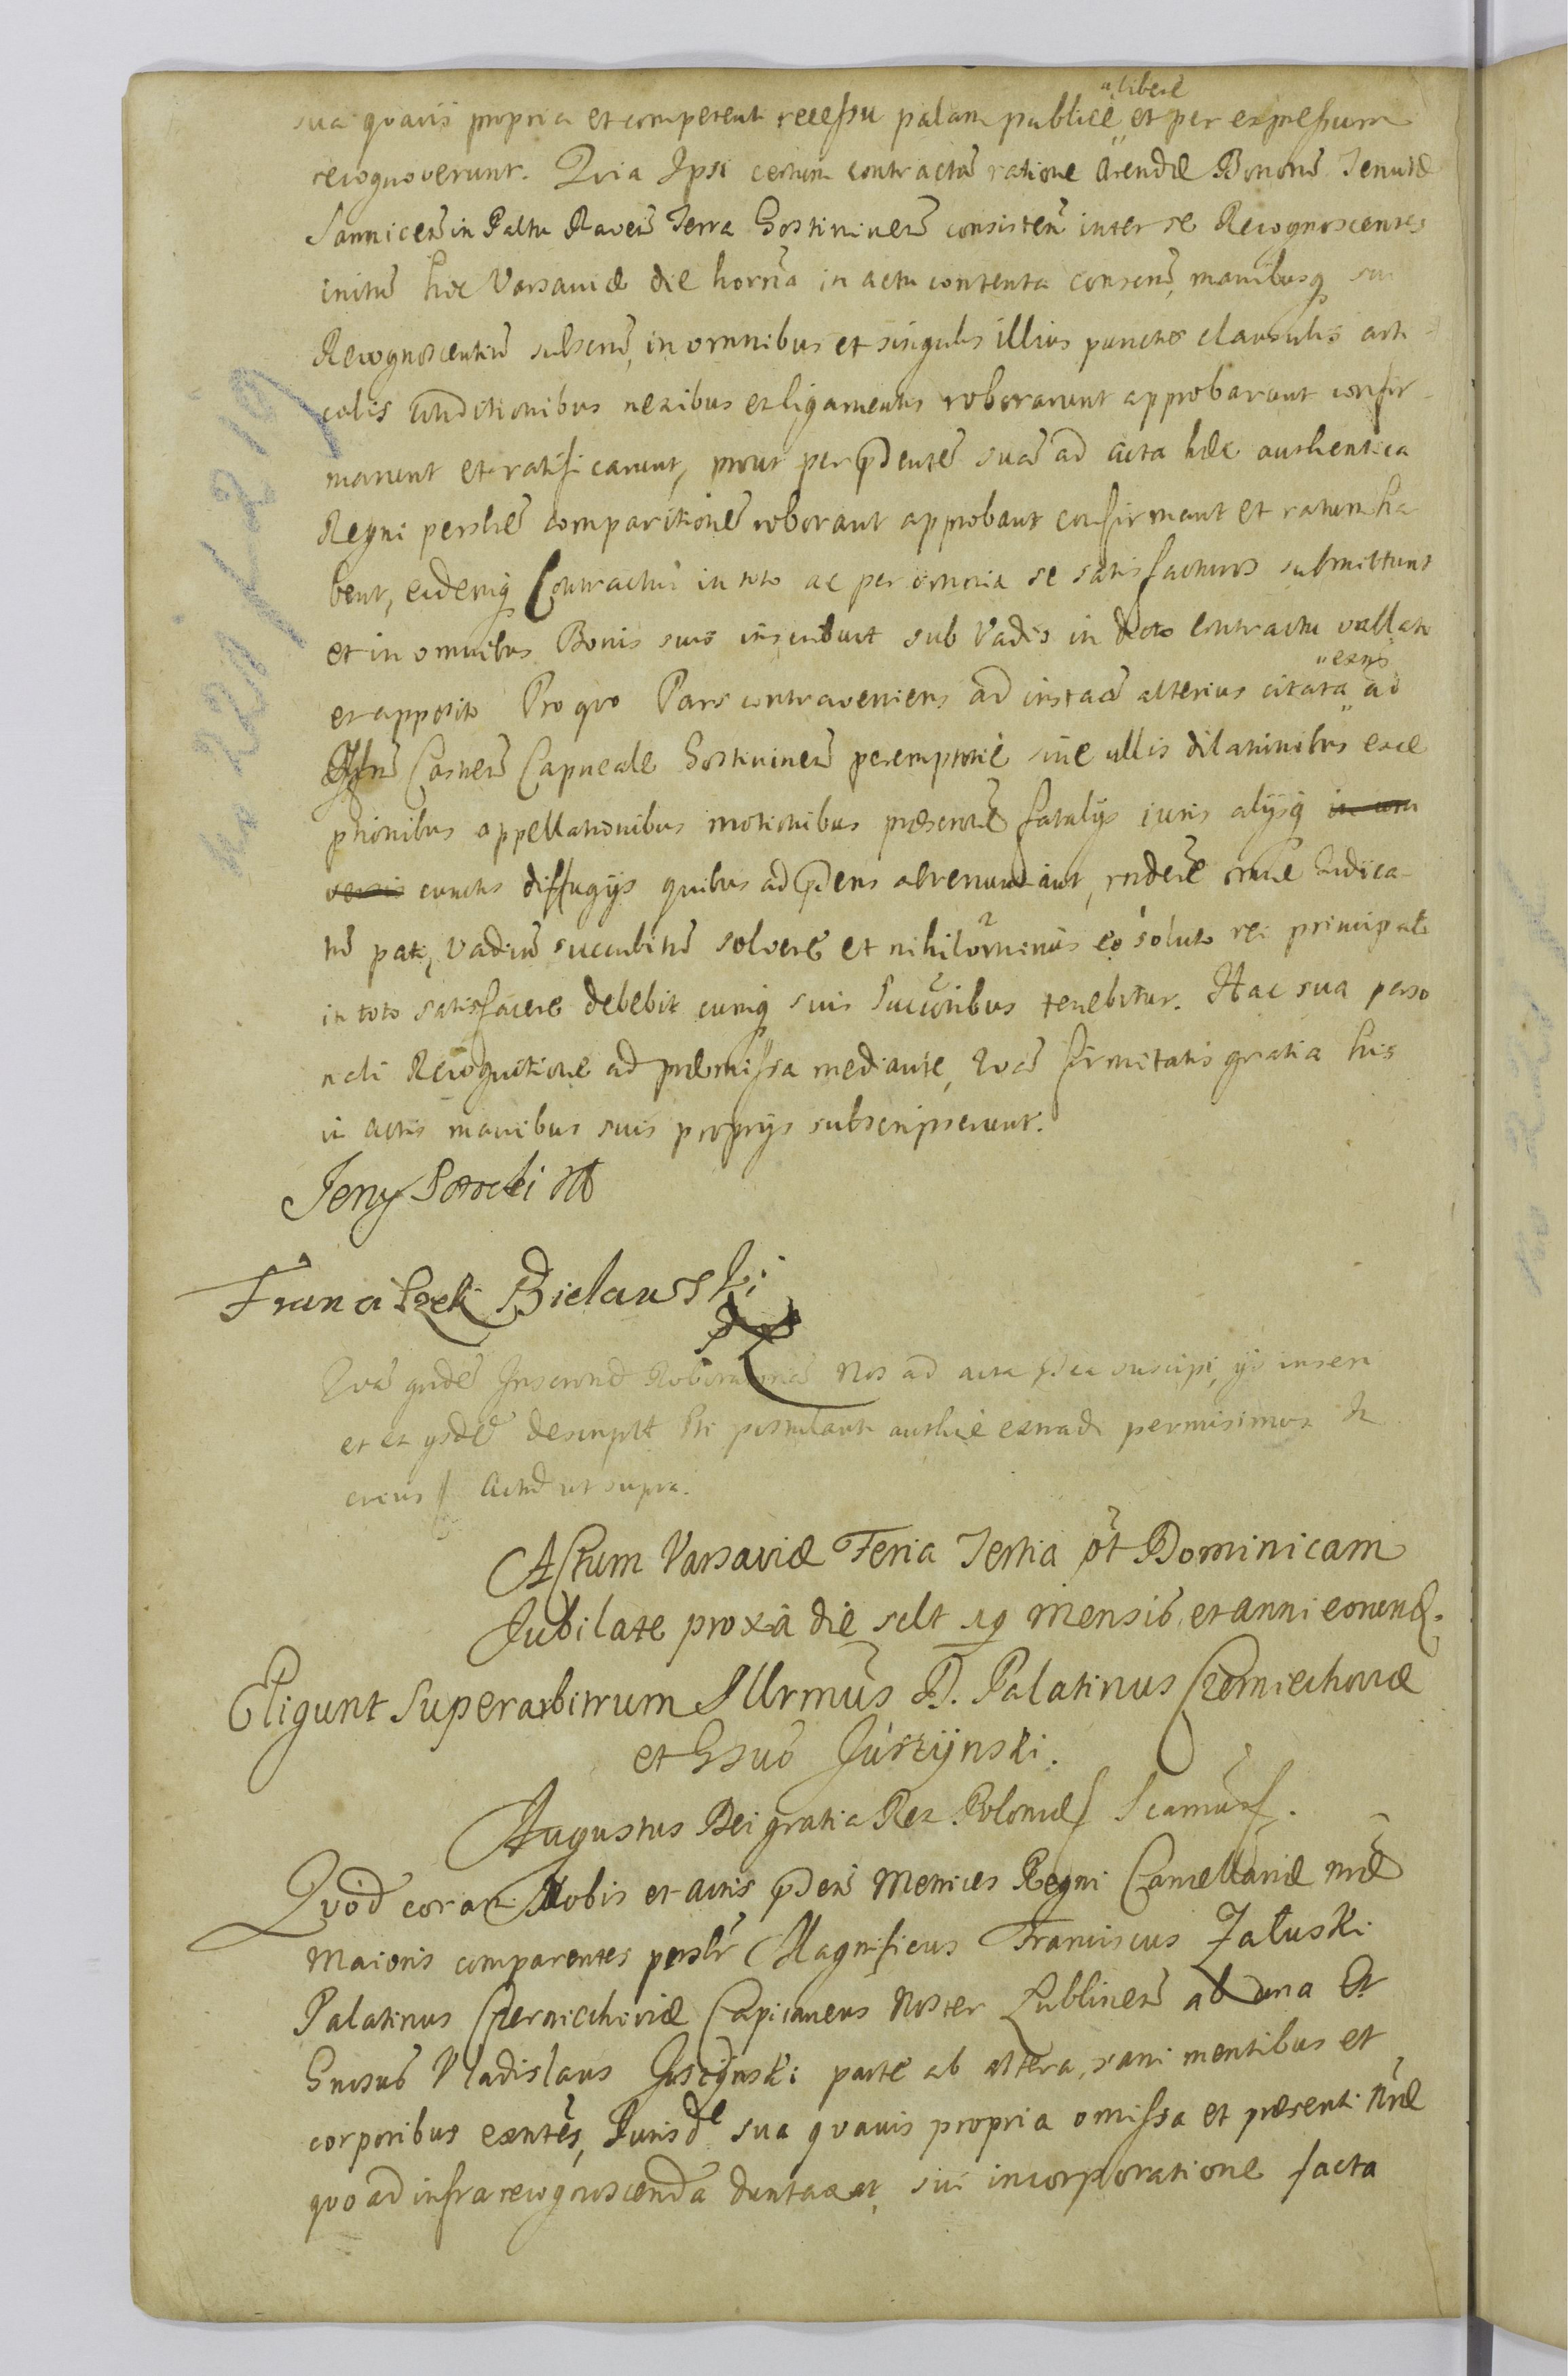 "libere
sua quavis propria et competenti recessu palam publice et per expressum
recognoverunt. Quia Ipsi certum contractũ ratione Arendæ Bonorũ Tenutæ
Sannicen̄ in Paltu Raven̄ Terra Gostininen̄ consisteñ inter se Recognoscentes
initũ hic Varsaviæ die horrña in actu contenta conscrip̃, manibusq su
Recognoscentiũ subscrip̃, in omnibus et singulis illius punctis clausulis arti
culis conditionibus nexibus et ligamentis roborarunt approbarunt confir-
marunt et ratificarunt, prout per p̃dentẽ suã ad acta hæc authentica
Regni perslẽ comparitionẽ roborant approbant confirmant et ratum ha
bent, eidemq Contractui in toto ac per omnia se satisfacturos submittunt
et in omnibus Bonis suis inscribunt sub Vadis in dicto contractu vallato
"exñs
et apposito Pro quo Pars contraveniens ad instaã alterius citata ad
Offm̃ Castreñ Capneale Gostininen̄ peremptorie sine ullis dilationibus exce
ptionibus appellationibus motionibus præscrone fatalijs iuris alijsq
cunctis diffugijs quibus ad p̃dens abrenunciant, rñdere omñe Iudica-
tũ pati, vadiũ succubitũ solvere et nihilominus eo soluto rei principali
in toto satisfacere debebit cumq suis Succoribus tenebitur. Hac sua perso
nali Recognitione ad præmissa mediante, Quã firmitatis gratia his
in actis manibus suis proprijs subscripserunt.
Jerzy
Franciszek Bielawski
Quã quidẽ Nos ad acta p̃ta suscipi, ijs inseri
et ex ijsdẽ descriptt Pti postulanti authce extradi permisimus
Actũ ut supra.
Actum Varsaviæ Feria Tertia pt̃ Dominicam
Jubilate proxã die sclt 19 Mensis et anni eorund.
Eligunt Superarbitrum Illrmus D. Palatinus Czerniechoviæ
et Gsus Juszÿnski.
Augustus Dei gratia Rex Poloniæ
Quod coram Nobis et actis p̃deñ Metrices Regni Cancellariæ nr̃æ
Maioris comparentes perslr̃ Magnificus Franciscus Załuski
Palatinus Czerniechoviæ Capitaneus Noster Lublineñ ab una Et
Gnosus Vladislaus Juszÿnski parte ab altera, sani mentibus et
corporibus exñtes, Jurisde sua quavis propria omissa et præsenti nr̃æ
quo ad infra recognoscenda duntaxat, sui incorporatione facta